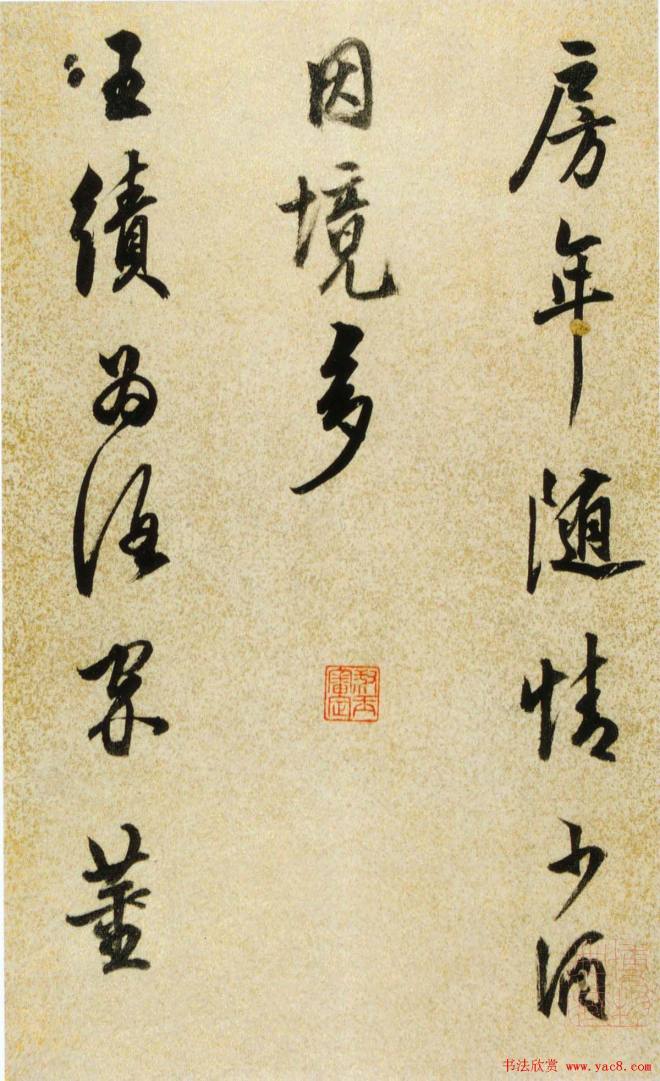 房年随情少酒
因境多
王績為酒家董
书法欣赏 www.yac8.com